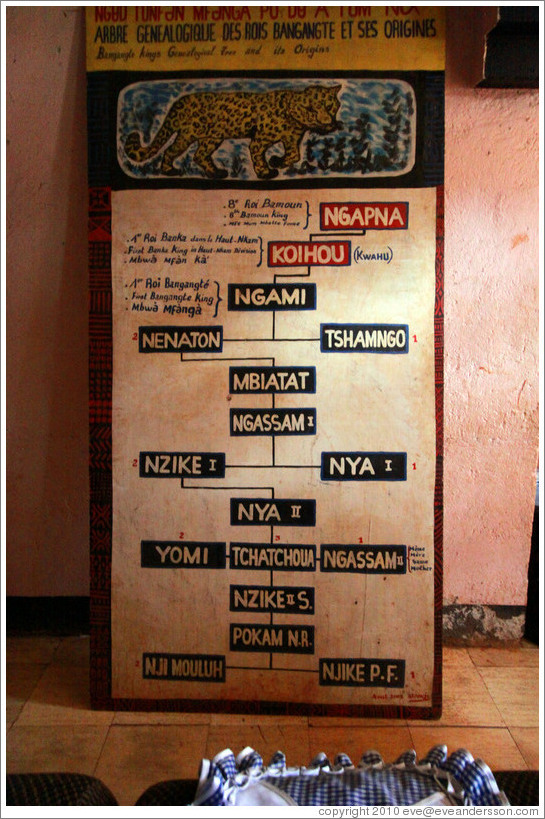 NGBU
ARBRE GENEALOGIQUE DES ROIS BANGANGTE ET SES ORIGINES
Bangangte kings Genealogical Tree and its Origins
. 8e Roi Bamoun
. 8th Bamoun King
NGAPNA
. 1er Roi Banka dans le Haut-Nkam
. First Banka King in Haut-Nkam Division
. Mbwà Mfàn Kà'
KOIHOU
(KWAHU)
. 1er Roi Bangangté
. First Bangangte King
. Mbwà Mfàngà
NGAMI
2 NENATON TSHAMNGO 1
MBIATAT
NGASSAM I
2 NZIKE I NYA I 1
NYA II
2 3 1
YOMI TCHATCHOUA NGASSAM II
Même
Mère
Same
Mother
NZIKE II S.
POKAM N.R.
2 NJI MOULUH NJIKE P.F. 1
copyright 2010 eve@eveandersson.com